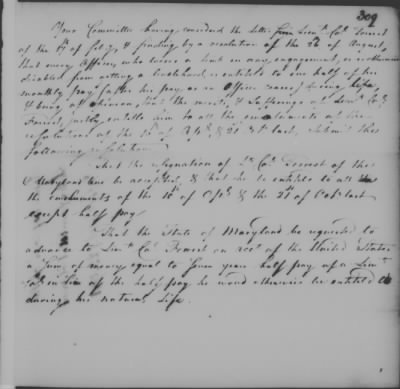 309
Your Committee having considered the letter from Lieut. Col. Forrest
of the 17th of Feby, & finding by a resolution of the 26 of August,
that every Officer who loses a limb in any engagement, or is otherwise
disabled from getting a livelihood, is entitled to one half of his
monthly pay (after his pay, as an Officer ceases) during life,
& being of opinion, that the merits, & sufferings of Lieut. Col.
Forrest, justly entitle him to all the emoluments of the
resolutions of the 10 of & 21 Oct last, submit the
following resolutions
That the resignation of Lt. Col. Forrest of the
Maryland line be accepted, & that he be entitled to all
the emoluments of the 10th of & the 21st of Octr last
except half pay
That the State of Maryland be requested to
advance to Lieut. Col. Forrest on acct of the United States
a sum of money equal to seven years half pay of a Lieut.
Col. in lieu of the half pay he would otherwise be entitled to
during his natural life.